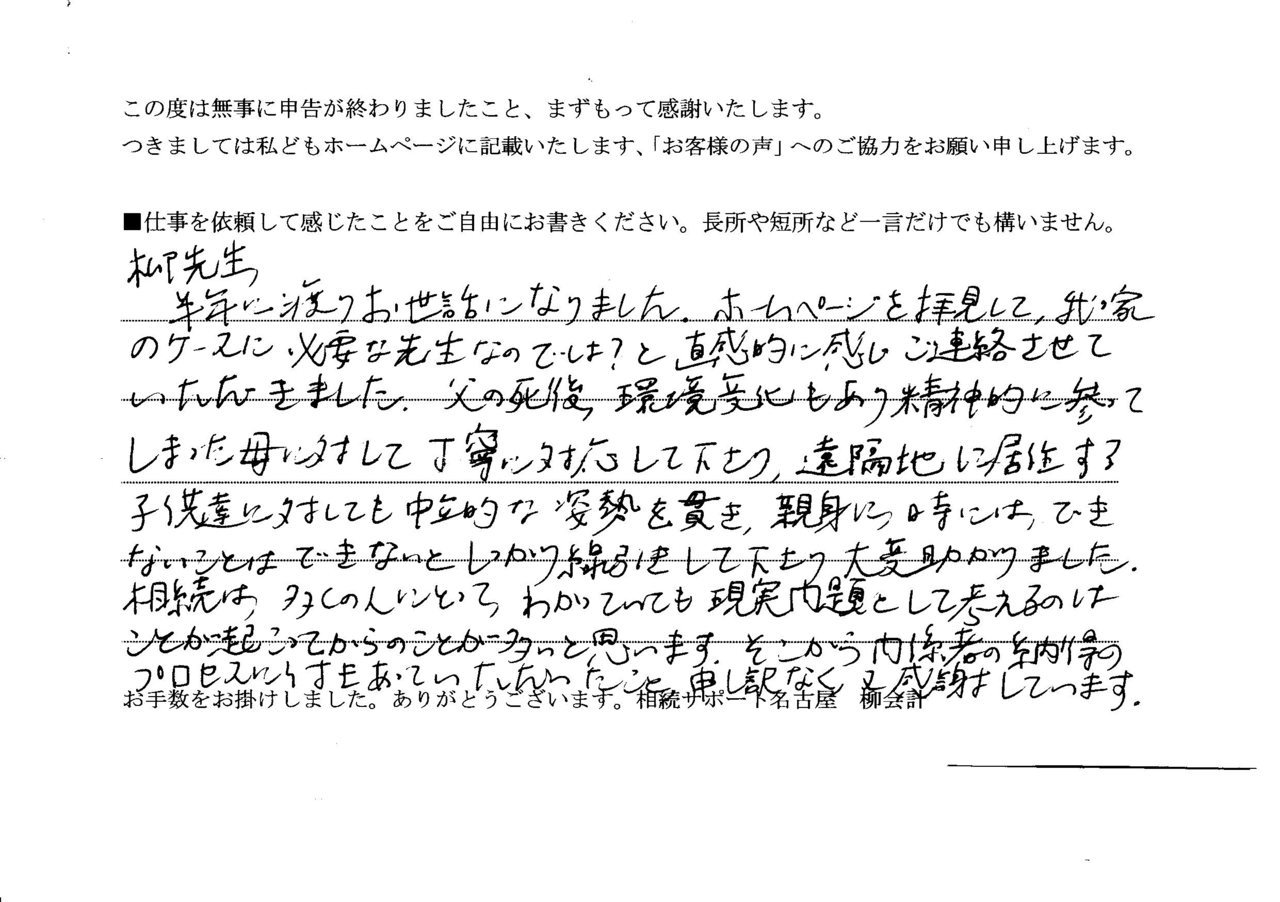 この度は無事に申告が終わりましたこと、まずもって感謝いたします。
つきましては私どもホームページに記載いたします、「お客様の声」へのご協力をお願い申し上げます。
■仕事を依頼して感じたことをご自由にお書きください。長所や短所など一言だけでも構いません。
柳先生
半年に渡りお世話になりました。ホームページを拝見して、我が家
のケースに必要な先生なのでは?と直感的に感じご連絡させて
いただきました。父の死後、環境変化もあり精神的に参って
しまった母に対して丁寧に対応して下さり、遠隔地に居住する
子供達に対しても中立的な姿勢を貫き、親身に、時には、でき
ないことはできないとしっかり線引きして下さり大変助かりました。
相続は、多くの人にとって、わかっていても現実問題として考えるのは
ことが起こってからのことが多いと思います。そこから関係者の納得の
プロセスに付き合っていただいたこと、申し訳なく又感謝しています。
お手数をお掛けしました。ありがとうございます。相続サポート名古屋　柳会計